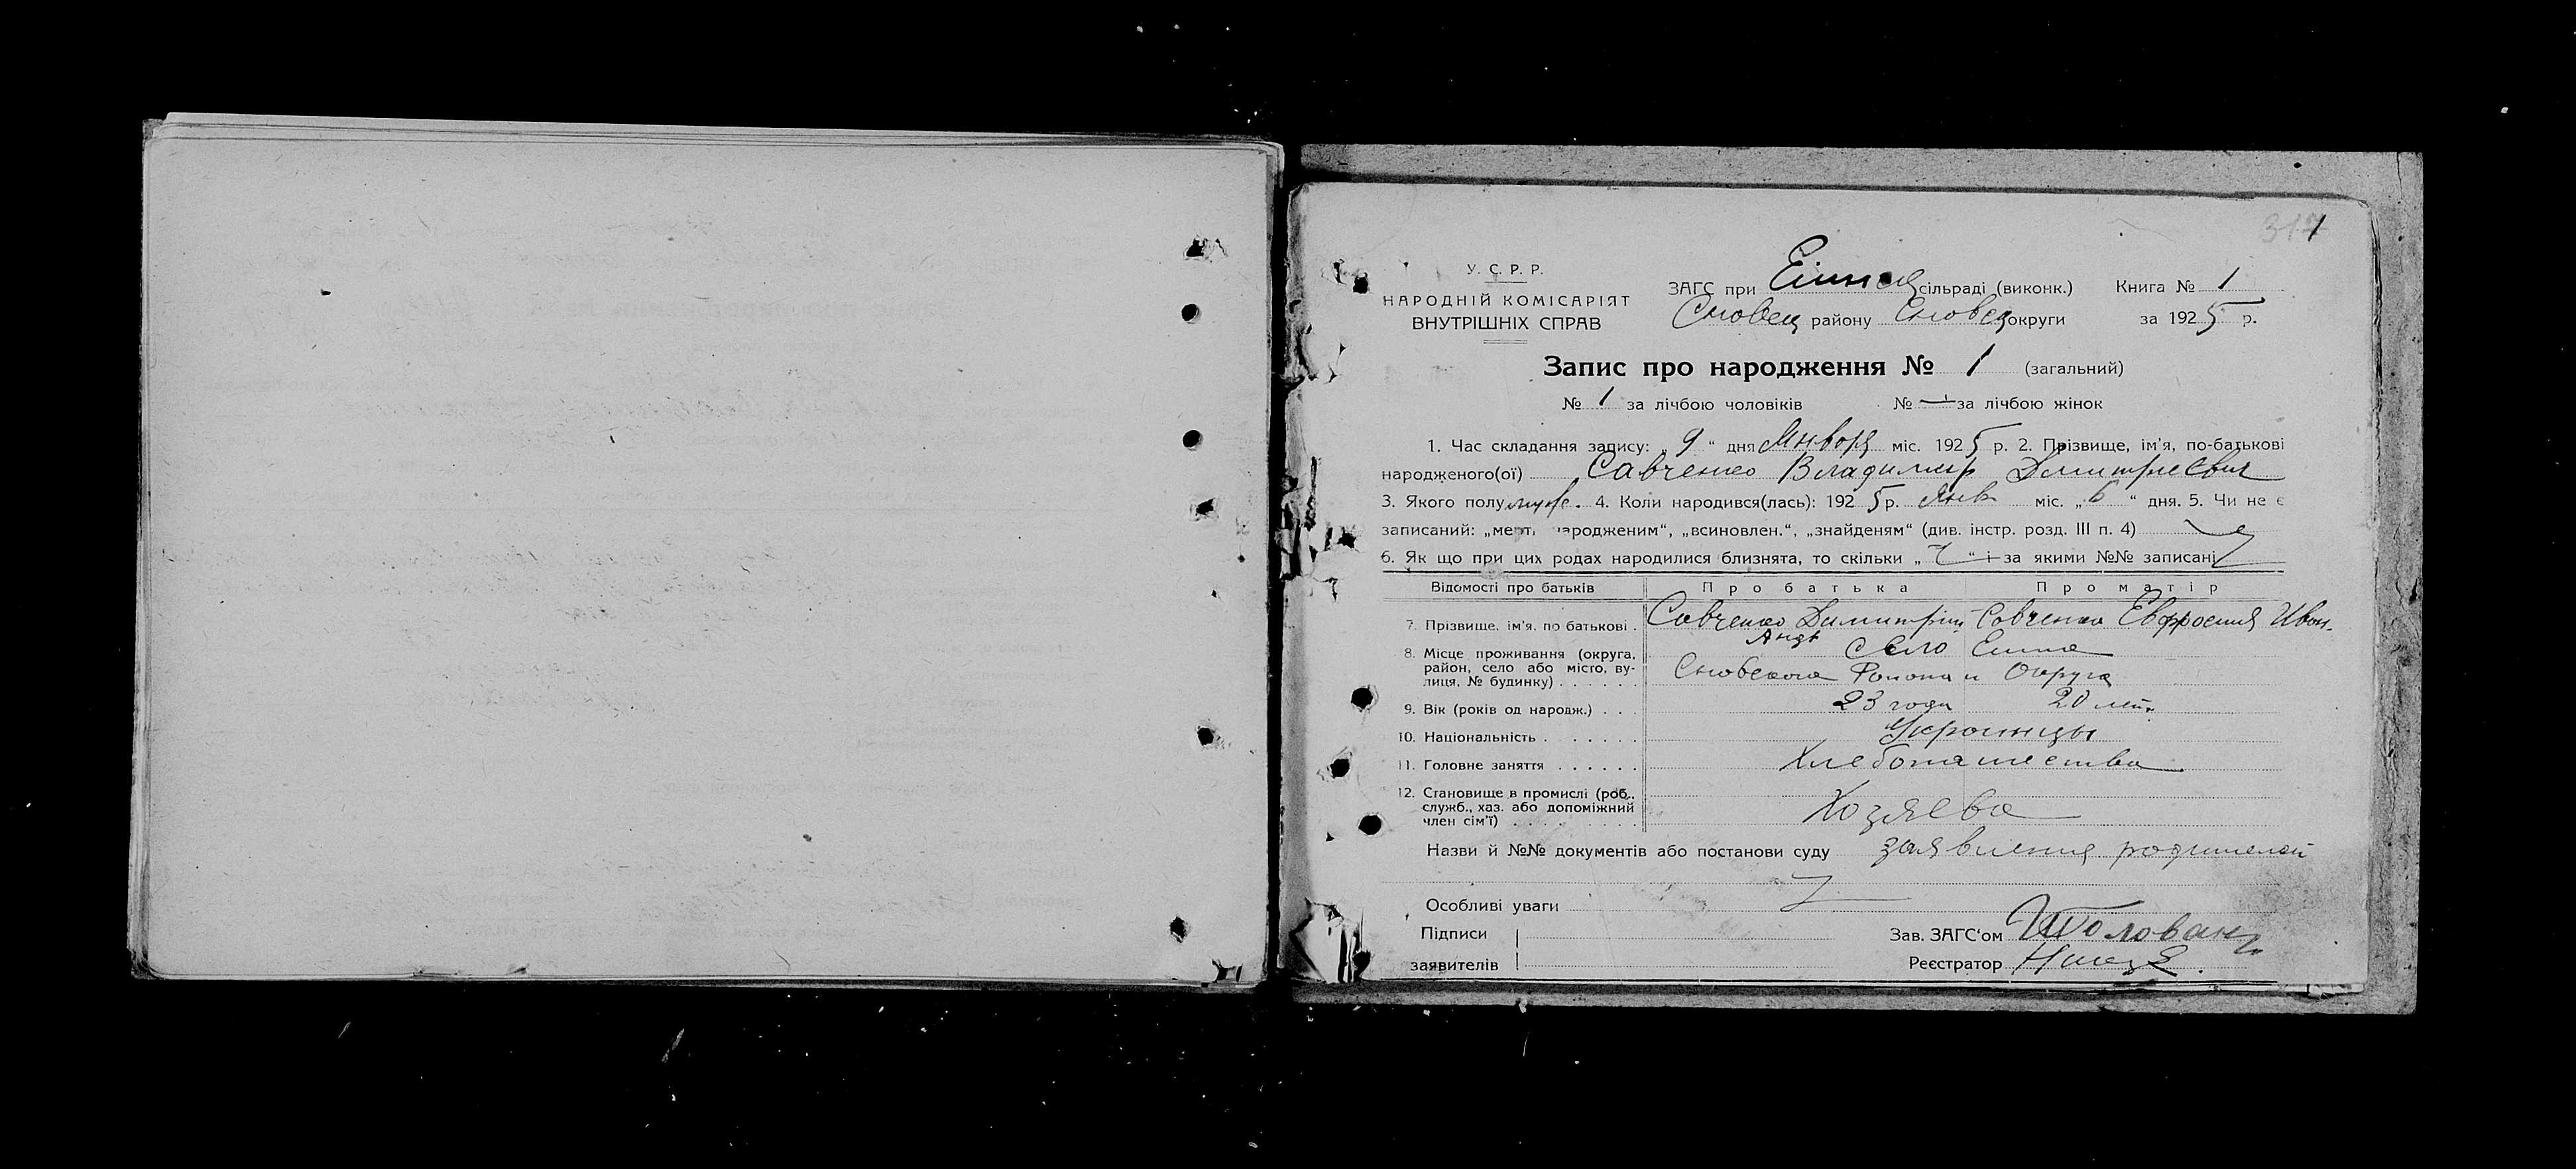 317 1
У. С. Р. Р.
НАРОДНІЙ КОМІСАРІЯТ
ВНУТРІШНІХ СПРАВ
ЗАГС при сільраді (виконк.) Книга № 1
Сновск району Сновск округи за 1925 р.
Запис про народження № 1 (загальний)
№ 1 за лічбою чоловіків № — за лічбою жінок
1. Час складання запису: „ 9 “ дня Января міс. 1925 р. 2. Прізвище, ім'я, по-батькові
народженого(ої) Савченко Владимир Димитриевич
3. Якого полу муж. 4. Коли народився(лась): 1925 р. Янв міс. „ 6 “ дня. 5. Чи не є
записаний: „мерт народженим“, „всиновлен.“, „знайденям“ (див. інстр. розд. III п. 4)
6. Як що при цих родах народилися близнята, то скільки „ “ і за якими №№ записані
Відомості про батьків Про батька Про матір
7. Прізвище, ім'я, по батькові . Савченко Димитрий Савченко Евфросиния Иван.
Андр
8. Місце проживання (округа, Село
район, село або місто, ву- Сновского Района и Округа
лиця, № будинку) . . . . . .
9. Вік (років од народж.) . . . 23 года 20 лет.
10. Національність . . . . . . . Украинцы
11. Головне заняття . . . . . . Хлебопашества
12. Становище в промислі (роб.,
служб., хаз. або допоміжний Хозяева
член сім'ї) . . . . . . . . .
Назви й №№ документів або постанови суду заявления родителей
Особливі уваги
Підписи Зав. ЗАГС'ом
заявителів Реєстратор